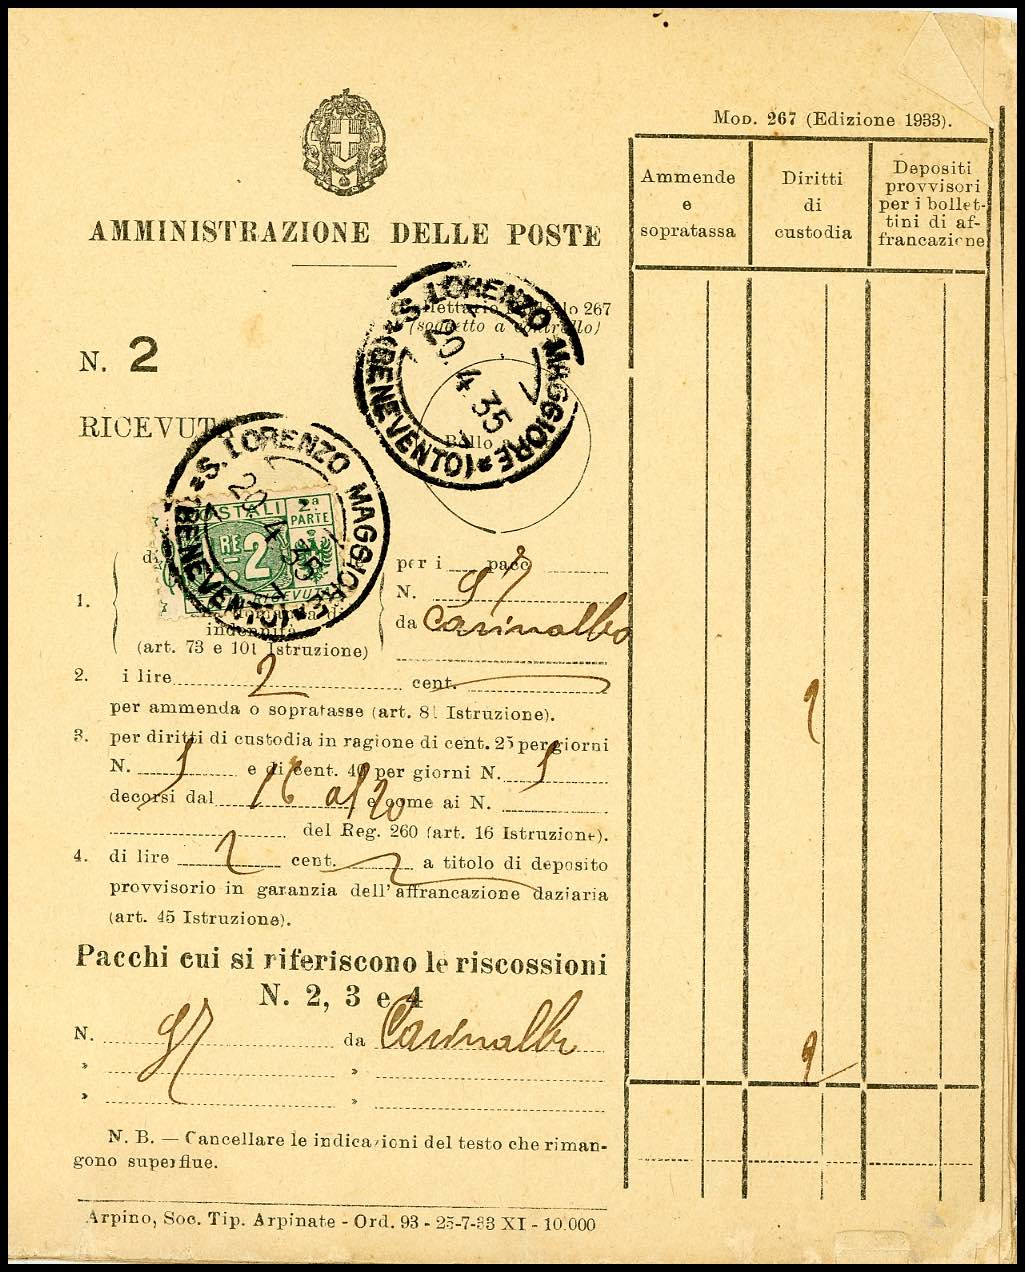 Mod. 267 (Edizione 1933).
Ammende e sopratassa
Diritti di custodia
Depositi provvisori per i bollettini di affrancazione
AMMINISTRAZIONE DELLE POSTE
267
(soggetto a controllo)
S. LORENZO MAGGIORE (BENEVENTO)
20.4.35
N. 2
RICEVUTA
Bollo
S. LORENZO MAGGIORE (BENEVENTO)
20.4.35
STALI 2ª PARTE
RE 2
RICEVUTA
di
per i pacc
1.
N. 97
indennità
da
(art. 73 e 101 Istruzione)
2. i lire 2 cent.
per ammenda o sopratasse (art. 81 Istruzione).
3. per diritti di custodia in ragione di cent. 25 per giorni
N. e di cent. 40 per giorni N.
decorsi dal 16 al 20 e come ai N.
del Reg. 260 (art. 16 Istruzione).
4. di lire 2 cent. a titolo di deposito
provvisorio in garanzia dell'affrancazione daziaria
(art. 45 Istruzione).
2
Pacchi cui si riferiscono le riscossioni
N. 2, 3 e 4
N. 97 da
2
» »
» »
N. B. — Cancellare le indicazioni del testo che riman-
gono superflue.
Arpino, Soc. Tip. Arpinate - Ord. 93 - 25-7-33 XI - 10.000